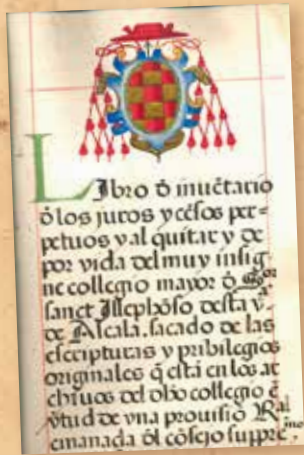 Libro õ inuẽtario
õ los juros y cẽsos per=
petuos y al quitar y de
por vida del muy insig
ne collegio mayor õ Sor
sanct Illephõso desta va
de Alcala. sacado de las
escripturas y pribilegios
originales q̃ estã en los ar
chiuos del dho collegio ẽ
vtud de vna prouisiõ Ral
emanada õl cõsejo suppremo.